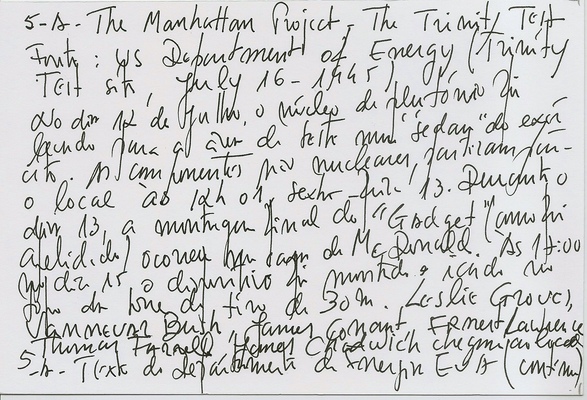 5-A- The Manhattan Project - The Trinity Test
Fonte: US Department of Energy (Trinity
Test site, July 16-1945)
No dia 12 de Julho, o núcleo de plutónio foi
levado para a área de teste num "sedan" do exér-
cito. As componentes não nucleares, partiram para
o local às 12h 01, sexta-feira 13. Durante o
dia 13, a montagem final do "Gadget" (como foi
apelidado) ocorreu na casa de McDonald. Às 17:00
no dia 15 o dispositivo foi montado e içado no
topo da torre de tiro de 30m. Leslie Groves,
Vannevar Bush, James Conant, Ernest Lawrence
Thomas Farrell, James Chadwick chegam ao local
5-A- Texto do departamento de Energia EUA (continua)